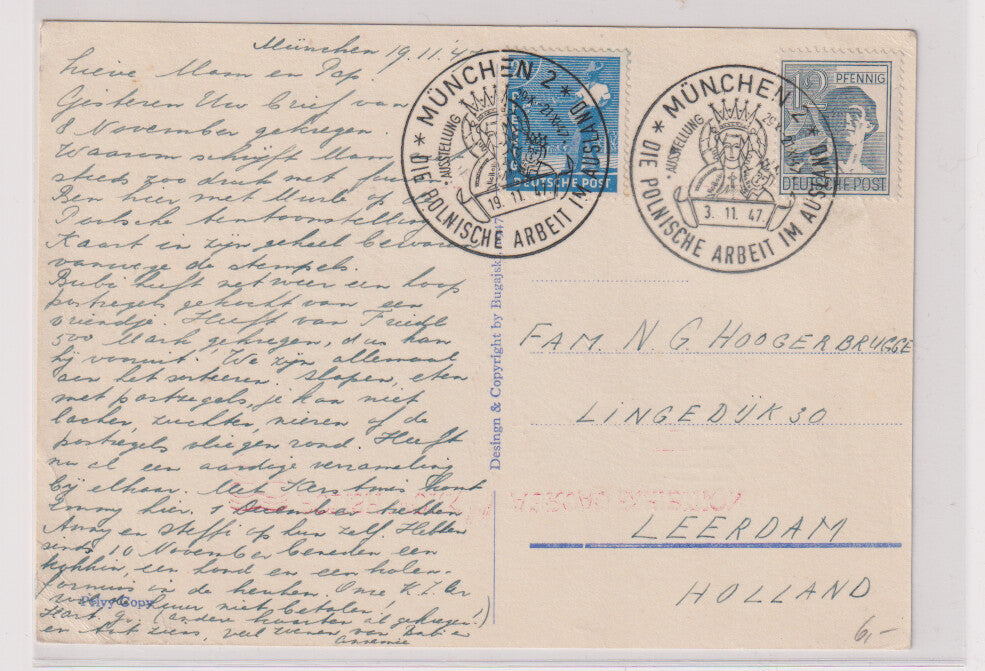 München 19 11 '4
Lieve Mam en Pap.
Gisteren Uw brief van
8 November gekregen.
Waarom schrijft Mam
steeds zoo druk met
Ben hier met Murle op d
Poolsche tentoonstelling
Kaart in zijn geheel bewaren
vanwege de stempels.
Bubi heeft net weer een hoop
postzegels gekocht van een
vriendje. Heeft van Friedl
500 Mark gekregen, dus kan
hij vooruit! We zijn allemaal
aan het sorteeren. Slapen, eten
met postzegels, je kan niet
lachen, zuchten, niezen of de
postzegels vliegen rond. Heeft
nu al een aardige verzameling
bij elkaar. Met Kerstmis komt
Emmy hier. 1 December trekken
Anny en Steffi op hun zelf. Hebben
sinds 10 November beneden een
een hond en een kolen-
fornuis in de keuken. Onze K.Z.ler
huur niet betalen!
Hart. gr. (andere kaarten al gekregen?)
en tot ziens, veel zoenen van Bubi en
Annemie
Polyy Copy
Desingn & Copyright by Bugajski 47
* MÜNCHEN 2 *
AUSSTELLUNG
19. 11. 47.
DIE POLNISCHE ARBEIT IM AUSLAND
DEUTSCHE POST
* MÜNCHEN 2 *
AUSSTELLUNG
3. 11. 47.
DIE POLNISCHE ARBEIT IM AUSLAND
12 PFENNIG
DEUTSCHE POST
FAM. N. G. HOOGERBRUGGE
LINGEDIJK 30
LEERDAM
HOLLAND
6,-